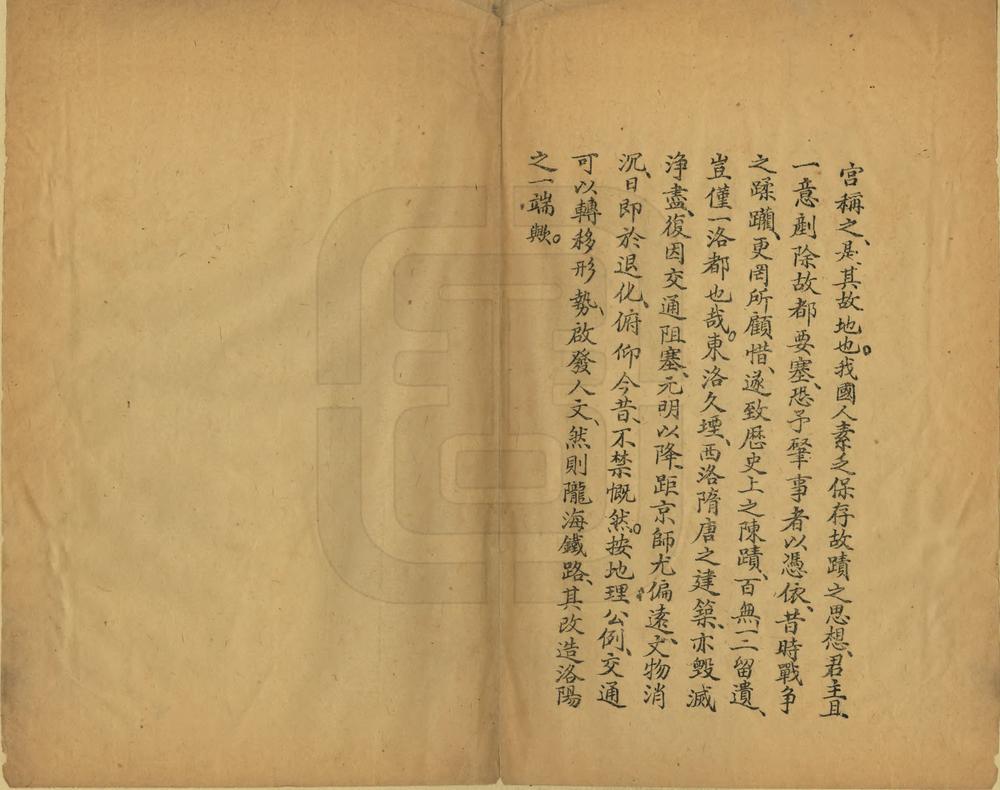 宮稱之、是其故地也。我國人素乏保存故蹟之思想、君主且
一意剷除故都要塞、恐予肇事者以憑依、昔時戰爭
之蹂躪、更罔所顧惜、遂致歷史上之陳蹟、百無一二留遺、
豈僅一洛都也哉。東洛久堙、西洛隋唐之建築、亦毀滅
淨盡、復因交通阻塞、元明以降、距京師尤偏遠、文物消
沉、日即於退化、俯仰今昔、不禁慨然。按地理公例、交通
可以轉移形勢、啟發人文、然則隴海鐵路、其改造洛陽
之一端歟。